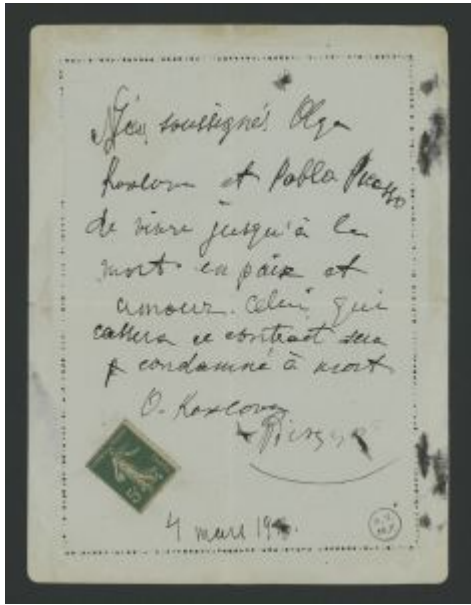 Nous soussignés Olga
Koxlova et Pablo Picasso
de vivre jusqu'à la
mort en paix et
amour. Celui qui
cassera ce contract sera
condamné à mort
O. Koxlova
Picasso
4 mars 19